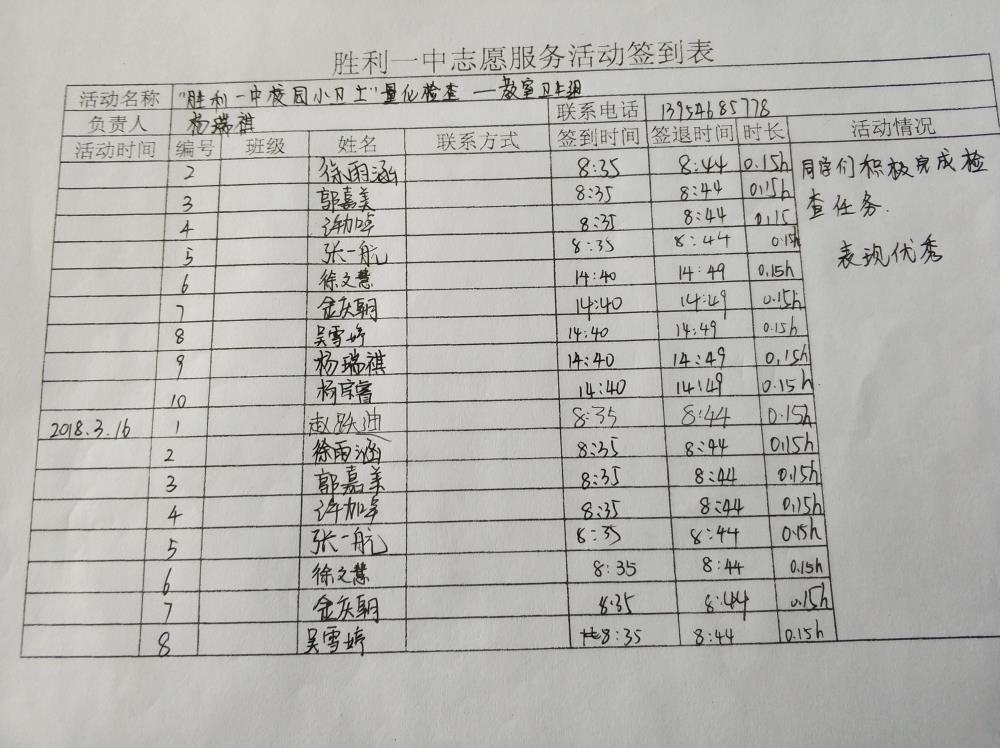 胜利一中志愿服务活动签到表
活动名称 "胜利一中校园小卫士"量化检查 —教室卫生组 联系电话 13954685778
负责人 杨瑞祺
活动时间 编号 班级 姓名 联系方式 签到时间 签退时间 时长 活动情况
2 徐雨涵 8:35 8:44 0.15h 同学们积极完成检
3 郭嘉美 8:35 8:44 0.15h
4 许加卓 8:35 8:44 0.15 查任务.
5 张一航 8:35 8:44 0.15h 表现优秀
6 徐文慧 14:40 14:49 0.15h
7 金庆朝 14:40 14:49 0.15h
8 吴雪婷 14:40 14:49 0.15h
9 杨瑞祺 14:40 14:49 0.15h
10 杨宗睿 14:40 14:49 0.15h
2018.3.16 1 赵跃迪 8:35 8:44 0.15h
2 徐雨涵 8:35 8:44 0.15h
3 郭嘉美 8:35 8:44 0.15h
4 许加卓 8:35 8:44 0.15h
5 张一航 8:35 8:44 0.15h
6 徐文慧 8:35 8:44 0.15h
7 金庆朝 8:35 8:44 0.15h
8 吴雪婷 8:35 8:44 0.15h